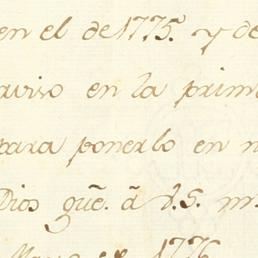 en el de 1775. y de
aviso en la prim
para ponerlo en n
Dios gūe. ā V.S. m.
Mayo de 1776